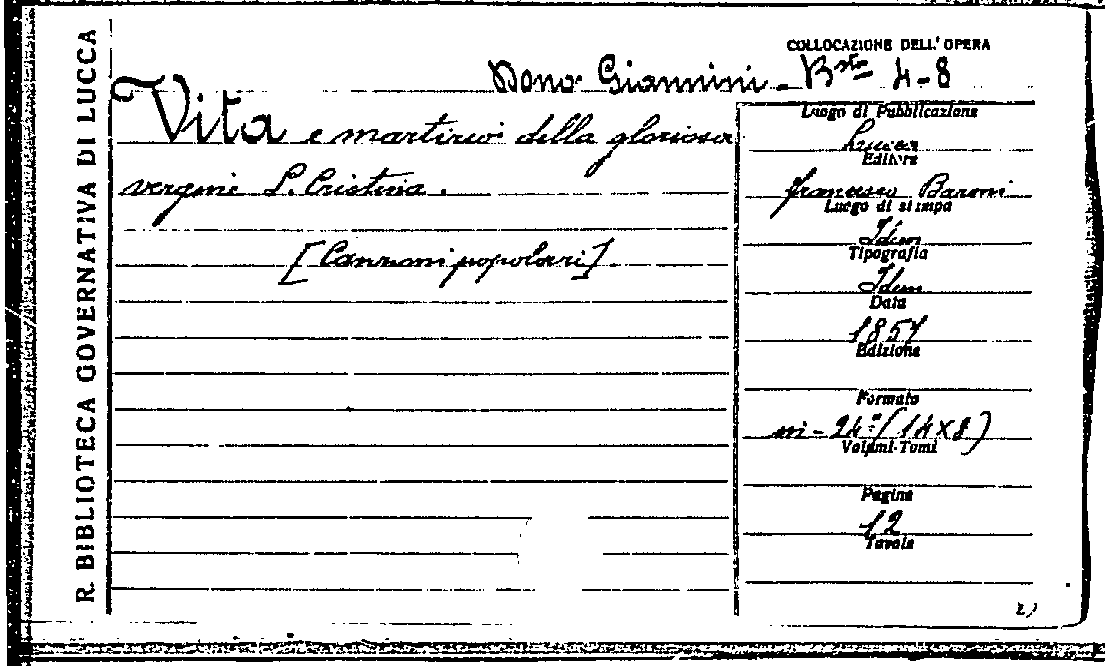 R. BIBLIOTECA GOVERNATIVA DI LUCCA
COLLOCAZIONE DELL'OPERA
Dono Giannini - Bsta 4-8
Vita e martirio della gloriosa
vergine S. Cristina.
[Canzoni popolari]
Luogo di Pubblicazione
Lucca
Editore
Francesco Baroni
Luogo di stampa
Idem
Tipografia
Idem
Data
1857
Edizione
Formato
in-24º (14x8)
Volumi-Tomi
Pagine
12
Tavole